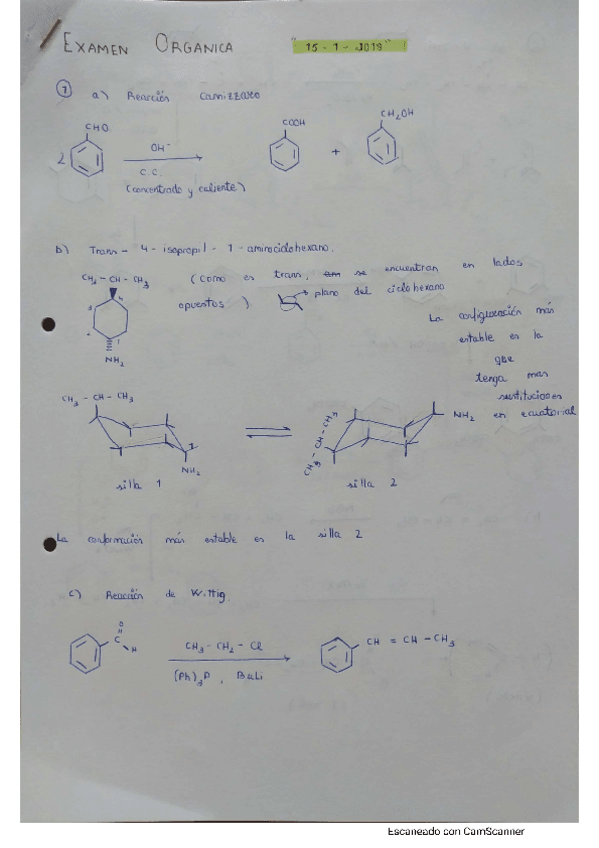 EXAMEN ORGANICA "15-1-2019"
1 a) Reacción Cannizzaro
CHO
COOH
CH2OH
2
OH-
+
C.C.
(concentrado y caliente)
b) Trans - 4 - isopropil - 1 - aminociclohexano.
CH3 - CH - CH3
(como es trans, se encuentran en lados
opuestos) plano del ciclohexano
4
3
2
1
NH2
La configuración más
estable es la
que
tenga mas
sustituciones
en ecuatorial
CH3 - CH - CH3
NH2
silla 1
CH3 - CH - CH3
NH2
silla 2
La conformación más estable es la silla 2
c) Reacción de Wittig.
O
C
H
CH3 - CH2 - Cl
(Ph)3P, BuLi
CH = CH - CH3
Escaneado con CamScanner